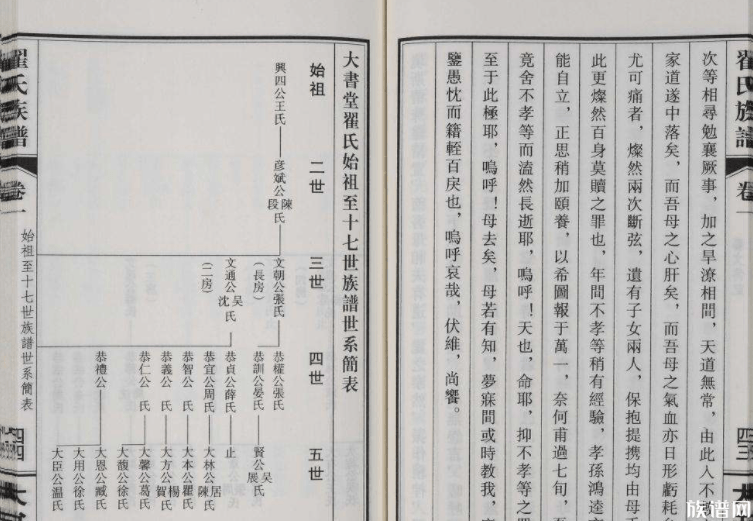 翟氏族譜
卷一
四三
次等相尋勉襄厥事，加之旱潦相間，天道無常，由此人不
家道遂中落矣，而吾母之心肝矣，而吾母之氣血亦日形虧耗
尤可痛者，燦然兩次斷弦，遺有子女兩人，保抱提攜均由母
此更燦然百身莫贖之罪也，年間不孝等稍有經驗，孝孫鴻逵
能自立，正思稍加頤養，以希圖報于萬一，奈何甫過七旬，
竟舍不孝等而溘然長逝耶，嗚呼！天也，命耶，抑不孝等之
至于此極耶，嗚呼！母去矣，母若有知，夢寐間或時教我，
鑒愚忱而籍輕百戾也，嗚呼哀哉，伏維，尚饗。
大書堂翟氏始祖至十七世族譜世系簡表
始祖
二世
三世
四世
五世
興四公王氏
彦斌公陳段氏
文朝公張氏
（長房）
文通公吴沈氏
（二房）
恭權公張氏
恭訓公晏氏
恭貞公薛氏
恭宜公周氏
恭智公 氏
恭義公 氏
恭仁公 氏
恭禮公
賢公吴展氏
止
大林公居陳氏
大本公瞿氏
大方公楊賀氏
大馨公葛氏
大馥公徐氏
大恩公臧氏
大用公徐氏
大臣公温氏
翟氏族譜
卷一
始祖至十七世族譜世系簡表
四四
族谱网